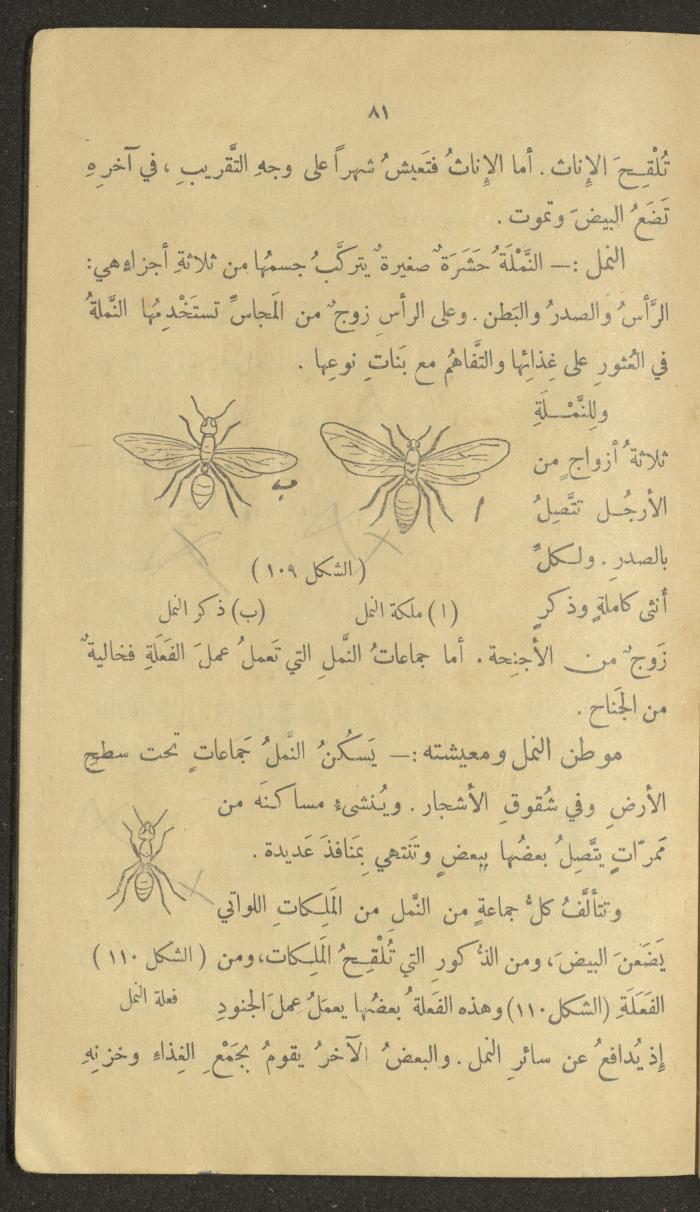 ٨١
تُلْقِحَ الإِناث . أما الإِناثُ فتَعيشُ شهراً على وجهِ التَّقريبِ ، في آخرِهِ
تَضَعُ البيضَ وتموت .
النمل :— النَّمْلَةُ حَشَرَةٌ صغيرةٌ يتركَّبُ جسمُها من ثلاثةِ أجزاءٍ هي:
الرَّأسُ والصدرُ والبَطن . وعلى الرأسِ زوجٌ من المَجاسِّ تستَخْدِمُها النَّملةُ
في العُثورِ على غِذائِها والتَّفاهُمِ مع بَناتِ نوعِها .
وللنَّمْلَةِ
ثلاثةُ أزواجٍ من
الأرجُلِ تتَّصِلُ
بالصدرِ . ولكلِّ
أُنثى كاملةٍ وذكرٍ
ا
ب
(الشكل ١٠٩)
(ا) ملكة النمل (ب) ذكر النمل
زَوجٌ من الأَجنِحة . أما جماعاتُ النَّملِ التي تَعملُ عملَ الفَعَلَةِ فخاليةٌ
من الجَناح .
موطن النمل ومعيشته :— يَسكُنُ النَّملُ جَماعاتٍ تحت سطحِ
الأرضِ وفي شُقوقِ الأشجار . ويُنشىءُ مساكنَه من
ممرّاتٍ يتَّصِلُ بعضُها بِبعضٍ وتَنتهي بِمَنافذَ عَديدة .
وتتألَّفُ كلُّ جماعةٍ من النَّملِ من المَلِكاتِ اللواتي
يَضَعنَ البيضَ ، ومن الذُّكورِ التي تُلْقِحُ المَلِكات ، ومن
الفَعَلَةِ (الشكل ١١٠) وهذه الفَعَلةُ بعضُها يعمَلُ عملَ الجنودِ
(الشكل ١١٠)
فعلة النمل
إِذ يُدافعُ عن سائرِ النمل . والبعضُ الآخرُ يقومُ بجَمْعِ الغِذاءِ وخزنِهِ